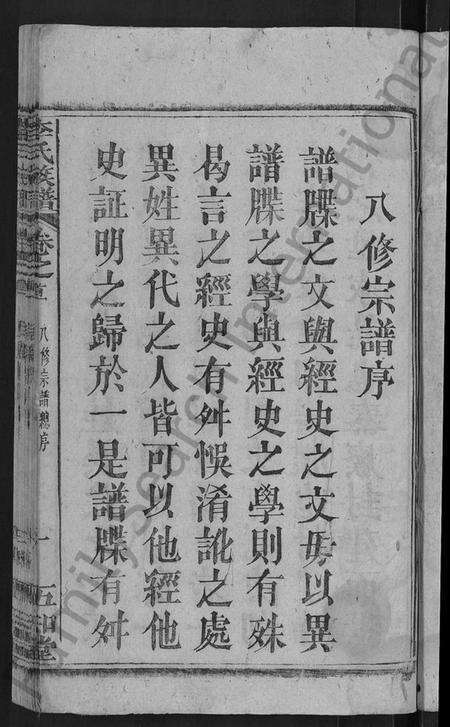 八修宗譜序
譜牒之文與經史之文毋以異
譜牒之學與經史之學則有殊
曷言之經史有舛悞淆訛之處
異姓異代之人皆可以他經他
史証明之歸於一是譜牒有舛
李氏族譜
卷之首
八修宗譜總序
一
FamilySearch International